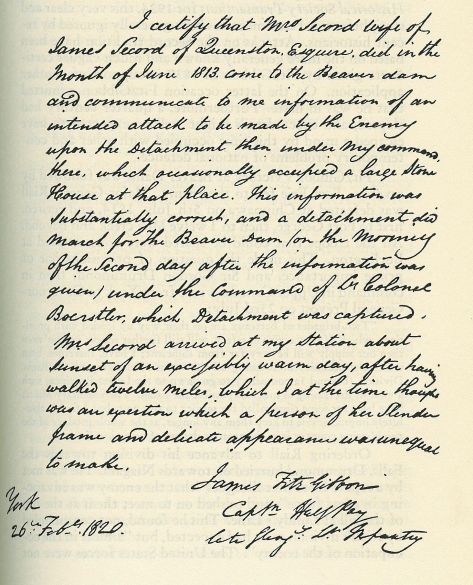 I certify that Mrs Secord wife of
James Secord of Queenston, Esquire, did in the
Month of June 1813. come to the Beaver dam
and communicate to me information of an
intended attack to be made by the Enemy
upon the Detachment then under my command
there, which occasionally occupied a large Stone
House at that place. This information was
Substantially correct, and a detachment did
March for the Beaver Dam (on the Morning
of the Second day after the information was
given) under the Command of Lt Colonel
Boerstler, which Detachment was captured.
Mrs Secord arrived at my Station about
Sunset of an excessively warm day, after having
walked twelve miles, which I at the time thought
was an exertion which a person of her Slender
frame and delicate appearance was unequal
to make.
James FitzGibbon
Captn Half Pay
late Glengy Lt Infantry
York
26th Feby 1820